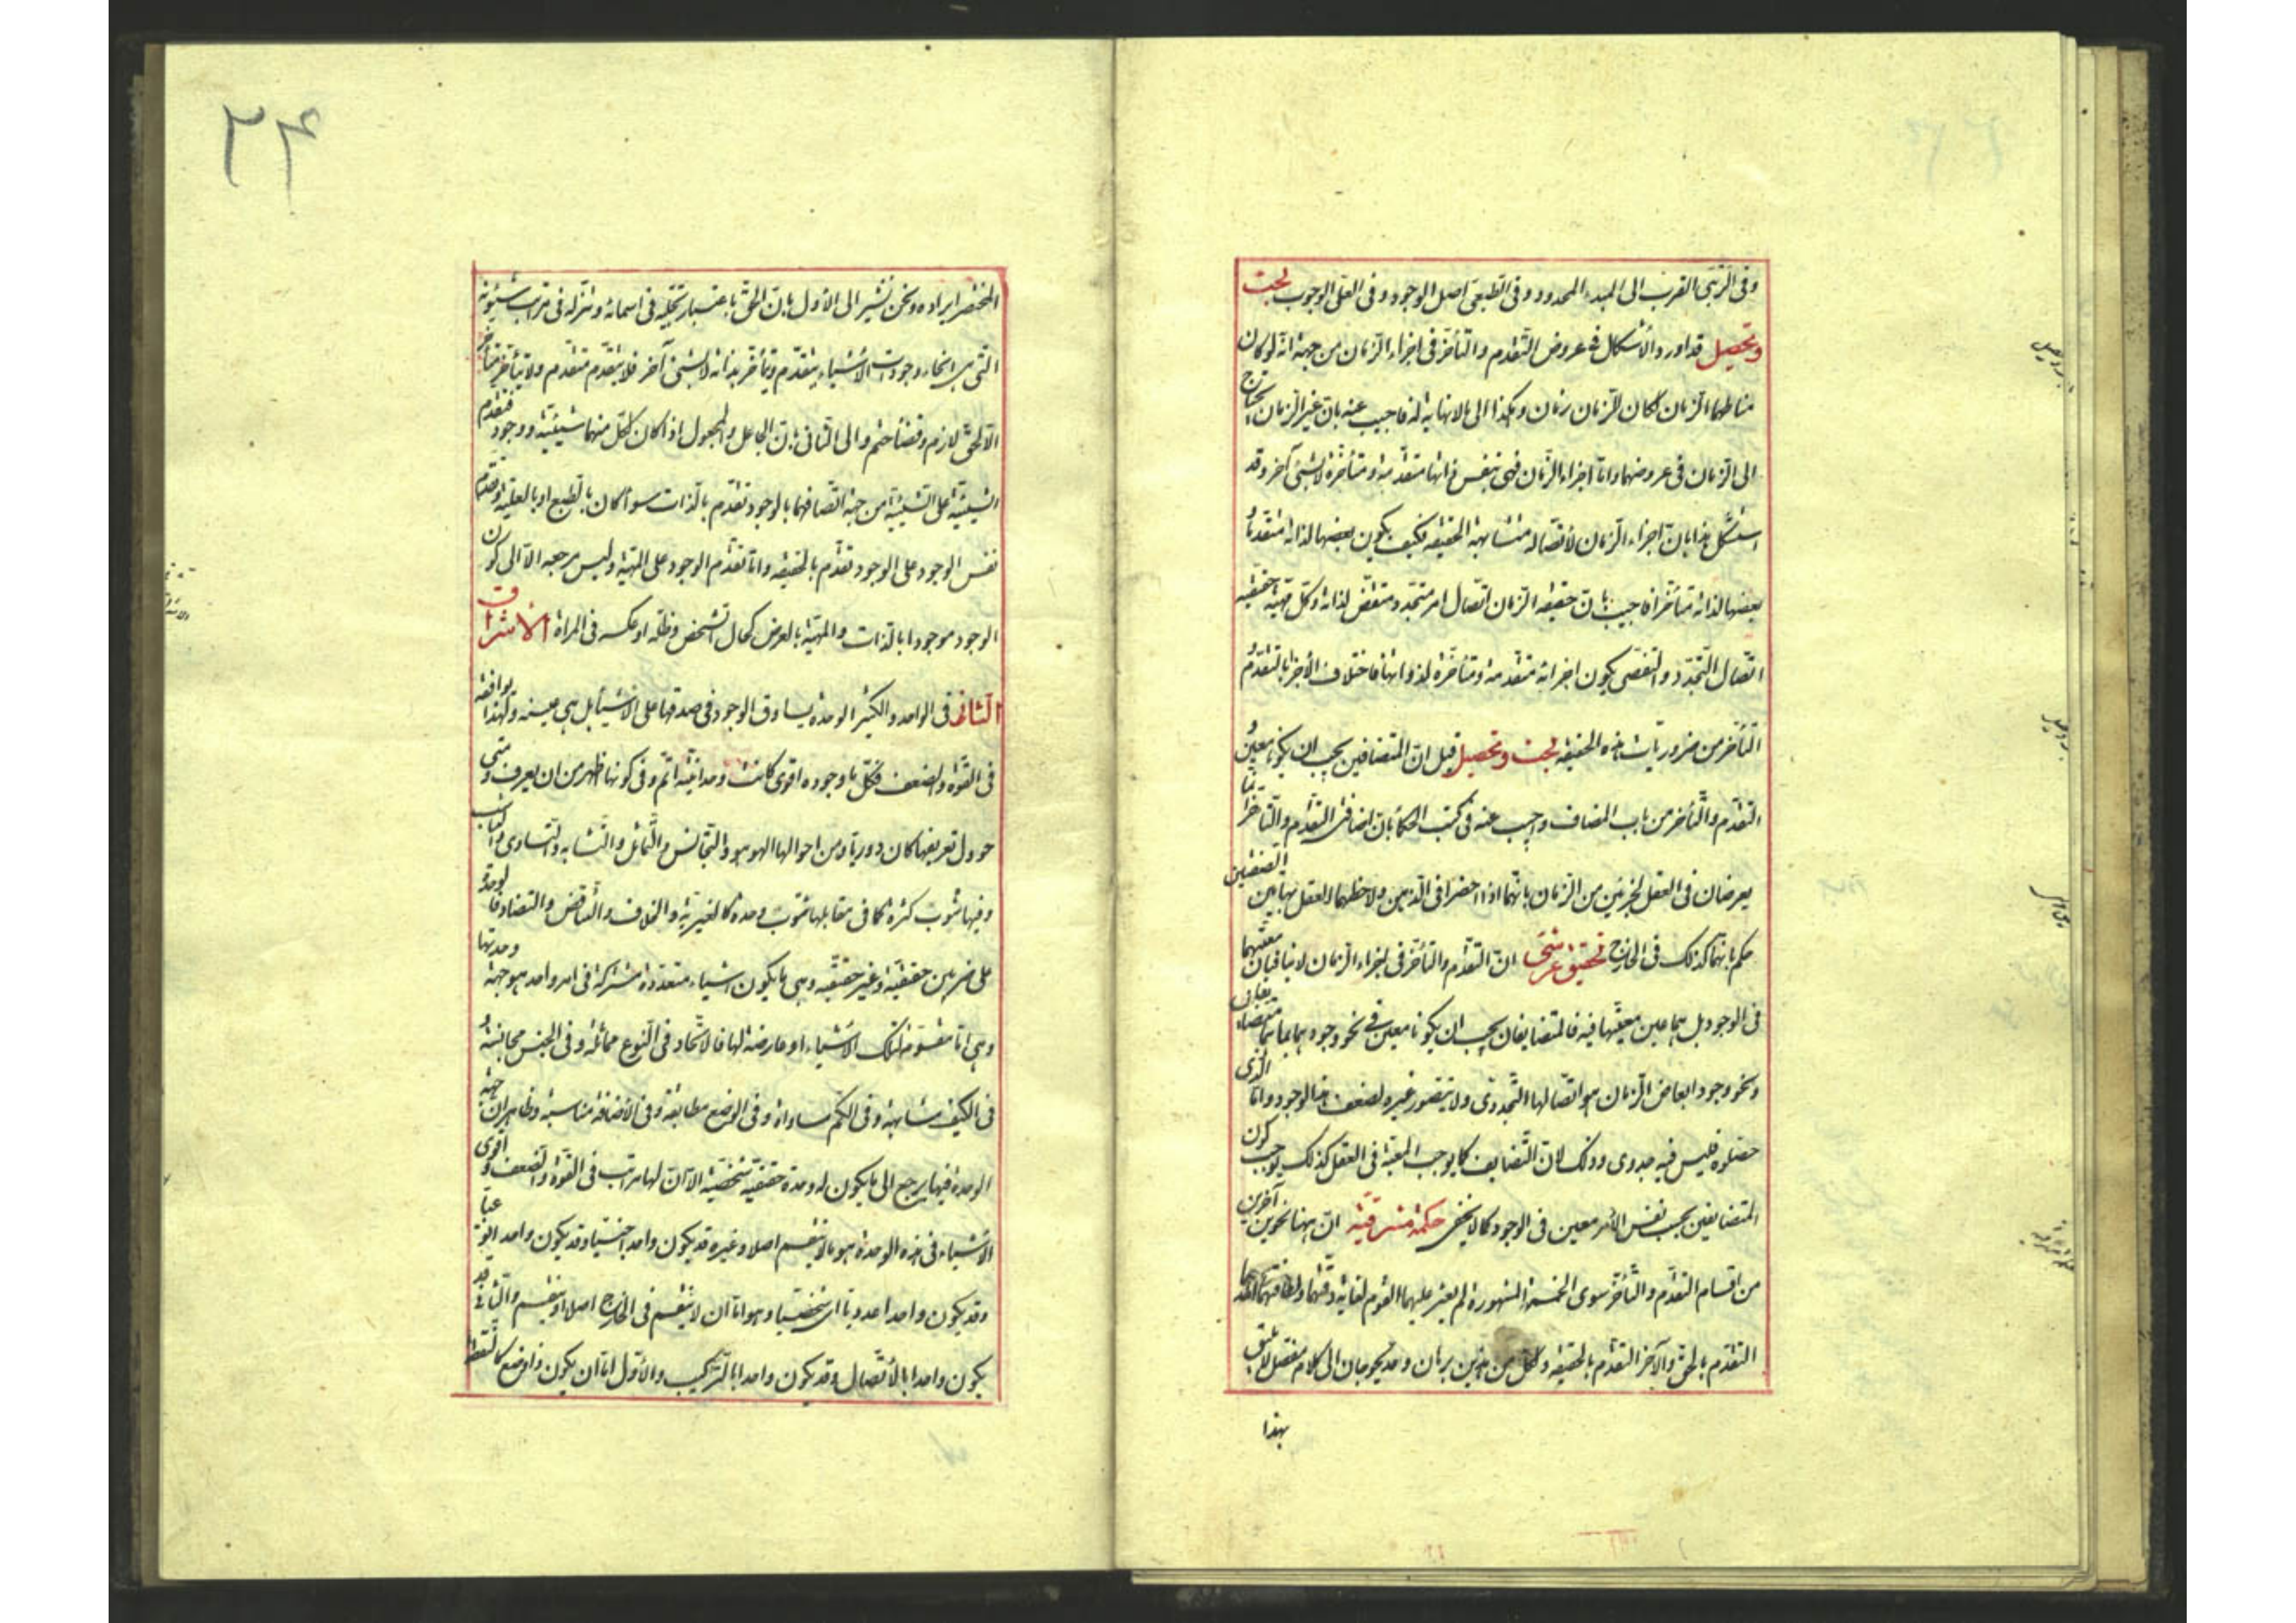 وفى الرتبى القرب الى المبدء المحدود وفى الطبعى اصل الوجود وفى العلى الوجوب بحث
وتحصيل قد اورد الأشكال فى عروض التقدم والتأخر فى اجزاء الزمان من جهة انه لو كان
مناطهما الزمان لكان للزمان زمان وهكذا الى ما لا نهاية له فاجيب عنه بان غير الزمان يحتاج
الى الزمان فى عروضهما واما اجزاء الزمان فهى بنفس ذاتها متقدمة ومتأخرة لا بشئ آخر وقد
استشكل هذا بان اجزاء الزمان لأتصاله متشابهة الحقيقة فكيف يكون بعضها لذاته متقدما و
بعضها لذاته متأخرا فاجيب بان حقيقة الزمان اتصال امر متجدد متقض لذاته وكل مهية حقيقته
اتصال التجدد والتقضى يكون اجزائه متقدمة ومتأخرة لذواتها فاختلاف الأجزا بالتقدم و
التأخر من ضروريات هذه الحقيقة بحث وتحصيل قيل ان المتضافين يجب ان يكونا معين و
التقدم والتأخر من باب المضاف واجيب عنه فى كتب الحكماء بان اضافتى التقدم والتأخر انما
يعرضان فى العقل لجزئين من الزمان بانهما اذا حضرا فى الذهن ولاحظهما العقل بهاتين الصفتين
حكم بانهما كذلك فى الخارج تحقيق عرشى ان التقدم والتأخر فى اجزاء الزمان لا ينافيان معيتهما
فى الوجود بل هما عين معيتهما فيه فالمتضايفان يجب ان يكونا معين فى نحو وجودهما بما هما متضايفان
ونحو وجود ابعاض الزمان هو اتصالها التجددى ولا يتصور غيره لضعف هذا الوجود واما الذى
حصلوه فليس فيه جدوى وذلك لان التضايف كما يوجب المعية فى العقل كذلك يوجب كون
المتضايفين بحسب نفس الأمر معين فى الوجود كما لا يخفى حكمة مشرقية ان ههنا نحوين آخرين
من اقسام التقدم والتأخر سوى الخمسة المشهورة لم يعثر عليهما القوم لغاية دقتهما ولطافتهما احدهما
التقدم بالحق والآخر التقدم بالحقيقة ولكل من هذين برهان وقد يحوجان الى كلام مفصل لا يليق
بهذا
٢۴
المختصر ايراده ونحن نشير الى الاول بان الحق باعتبار تجليه فى اسمائه وتنزله فى مراتب شيئونه
التى هى انحاء وجودات الأشياء يتقدم ويتأخر بذاته لا بشئ آخر فلا يتقدم متقدم ولا يتأخر متأخر
الا لحق لازم وقضاء حتم والى الثانى بان الجاعل والمجعول اذا كان لكل منهما شيئية ووجود فتقدم
الشيئية على الشيئية من جهة اتصافهما بالوجود تقدم بالذات سواء كان بالطبع او بالعلية وتقدم
نفس الوجود على الوجود تقدم بالحقيقة واما تقدم الوجود على المهية وليس مرجعه الا الى كون
الوجود موجودا بالذات والمهية بالعرض كحال الشخص وظله او عكسه فى المراة الاشراق
الثانى فى الواحد والكثير الوحدة يساوق الوجود فى صدقها على الاشياء بل هى عينه ولهذا يوافقه
فى القوة والضعف فكل ما وجوده اقوى كانت وحدانيته اتم وفى كونها اظهر من ان يعرف ومتى
حوول تعريفها كان دوريا ومن احوالها الهوهو والتجانس والتماثل والتشابه والتساوى و
وفيها شوب كثرة كما فى مقابلها شوب وحدة كالغيرية والخلاف والتناقض والتضاد فالوحدة
على ضربين حقيقية وغير حقيقية وهى ما يكون اشياء متعددة مشتركة فى امر واحد هو جهة وحدتها
وهى اما مقومة لتلك الأشياء او عارضة لها فالاتحاد فى النوع مماثلة وفى الجنس مجانسة و
فى الكيف مشابهة وفى الكم مساواة وفى الوضع مطابقة وفى الأضافة مناسبة وظاهر ان جهة
الوحدة فيها يرجع الى ما يكون له وحدة حقيقية شخصية الا ان لها مراتب فى القوة والضعف واقوى
الاشياء فى هذه الوحدة هو ما لا ينقسم اصلا وغيره قد يكون واحدا جنسيا وقد يكون واحدا نوعيا
وقد يكون واحدا عدديا اى شخصيا وهو اما ان لا ينقسم فى الخارج اصلا او ينقسم والثانى قد
يكون واحدا بالأتصال وقد يكون واحدا بالتركيب والأول اما ان يكون ذا وضع كالنقطة